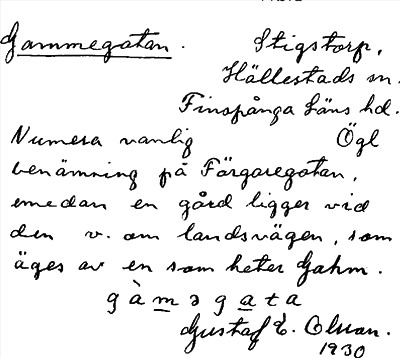 Gammegatan. Stigstorp,
Hällestads sn.
Finspånga läns hd.
Numera vanlig Ögl
benämning på Färgaregatan,
emedan en gård ligger vid
den v. om landsvägen, som
äges av en som heter Gahm.
gàməgata
Gustaf E. Olsson.
1930